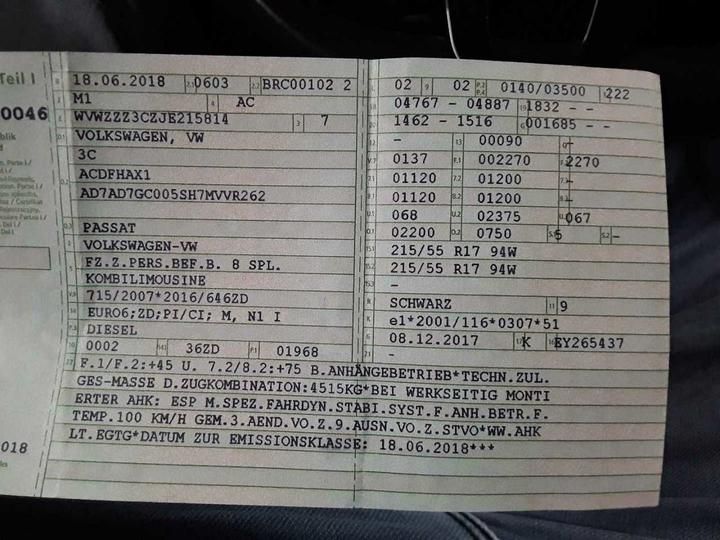 Teil I
0046
blik
d
018
B 18.06.2018 2.1 0603 2.2 BRC00102 2
J M1 4 AC
E WVWZZZ3CZJE215814 3 7
D.1 VOLKSWAGEN, VW
3C
D.2 ACDFHAX1
AD7AD7GC005SH7MVVR262
D.3 PASSAT
2 VOLKSWAGEN-VW
5 FZ.Z.PERS.BEF.B. 8 SPL.
KOMBILIMOUSINE
V.9 715/2007*2016/646ZD
14 EURO6;ZD;PI/CI; M, N1 I
P.3 DIESEL
10 0002 14.1 36ZD P.1 01968
L 02 9 02 P.2 P.4 0140/03500 T 222
18 04767 - 04887 19 1832 - -
20 1462 - 1516 G 001685 - -
12 - 13 00090 Q -
V.7 0137 F.1 002270 F.2 2270
7.1 01120 7.2 01200 7.3 -
8.1 01120 8.2 01200 8.3 -
U.1 068 U.2 02375 U.3 067
O.1 02200 O.2 0750 S.1 5 S.2 -
15.1 215/55 R17 94W
15.2 215/55 R17 94W
15.3 -
R SCHWARZ 11 9
K e1*2001/116*0307*51
6 08.12.2017 17 K 16 EY265437
21 -
22 F.1/F.2:+45 U. 7.2/8.2:+75 B.ANHÄNGEBETRIEB*TECHN.ZUL.
GES-MASSE D.ZUGKOMBINATION:4515KG*BEI WERKSEITIG MONTI
ERTER AHK: ESP M.SPEZ.FAHRDYN.STABI.SYST.F.ANH.BETR.F.
TEMP.100 KM/H GEM.3.AEND.VO.Z.9.AUSN.VO.Z.STVO*WW.AHK
LT.EGTG*DATUM ZUR EMISSIONSKLASSE: 18.06.2018***